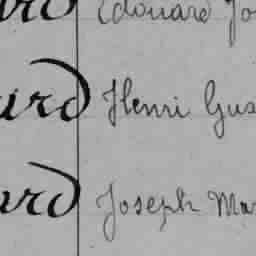 ard Edouard Jo
ard Henri Gus
ard Joseph Mar